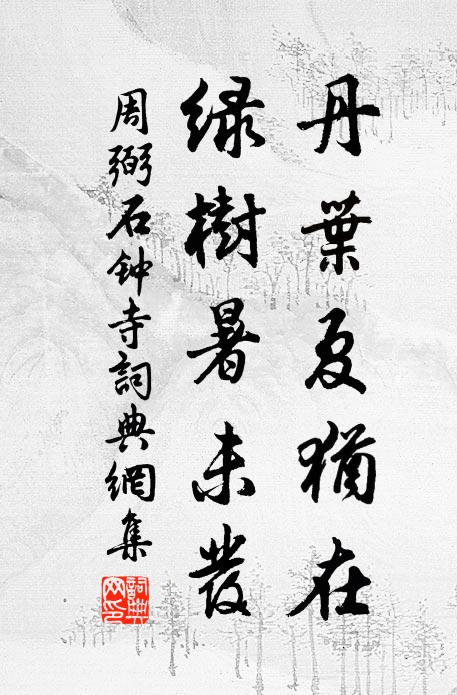 丹葉夏猶在
緑樹暑未發
周弼石钟寺詞典網集
詞典